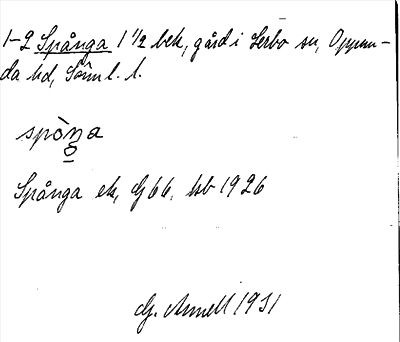 1-2 Spånga 1 1/2 bek, gård i Lerbo sn, Oppun-
da hd, Söml. l.
spòŋa
Spånga ek, G 66, hb 1926
G. Annell 1931